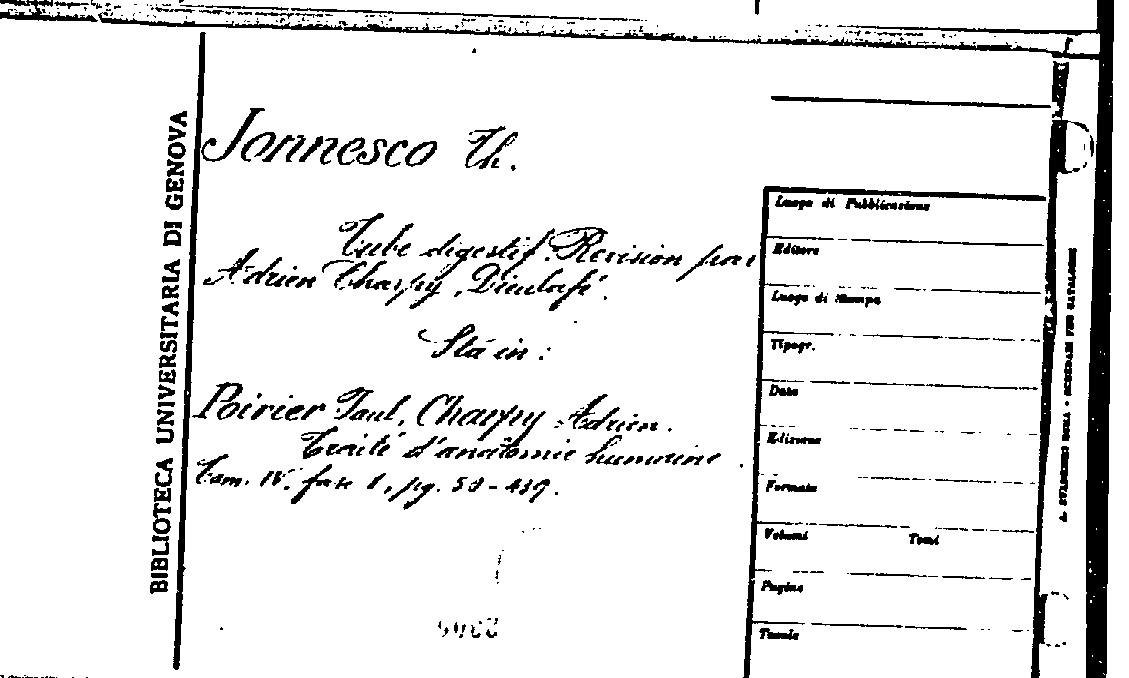 BIBLIOTECA UNIVERSITARIA DI GENOVA
Jonnesco Th.
Tube digestif. Revision par
Adrien Charpy, Dieulafé.
Sta in:
Poirier Paul, Charpy Adrien.
Traité d'anatomie humaine.
Tom. IV. fasc 1, pg. 50-439.
Luogo di Pubblicazione
Editore
Luogo di Stampa
Tipogr.
Data
Edizione
Formato
Volumi Tomi
Pagine
Tavole